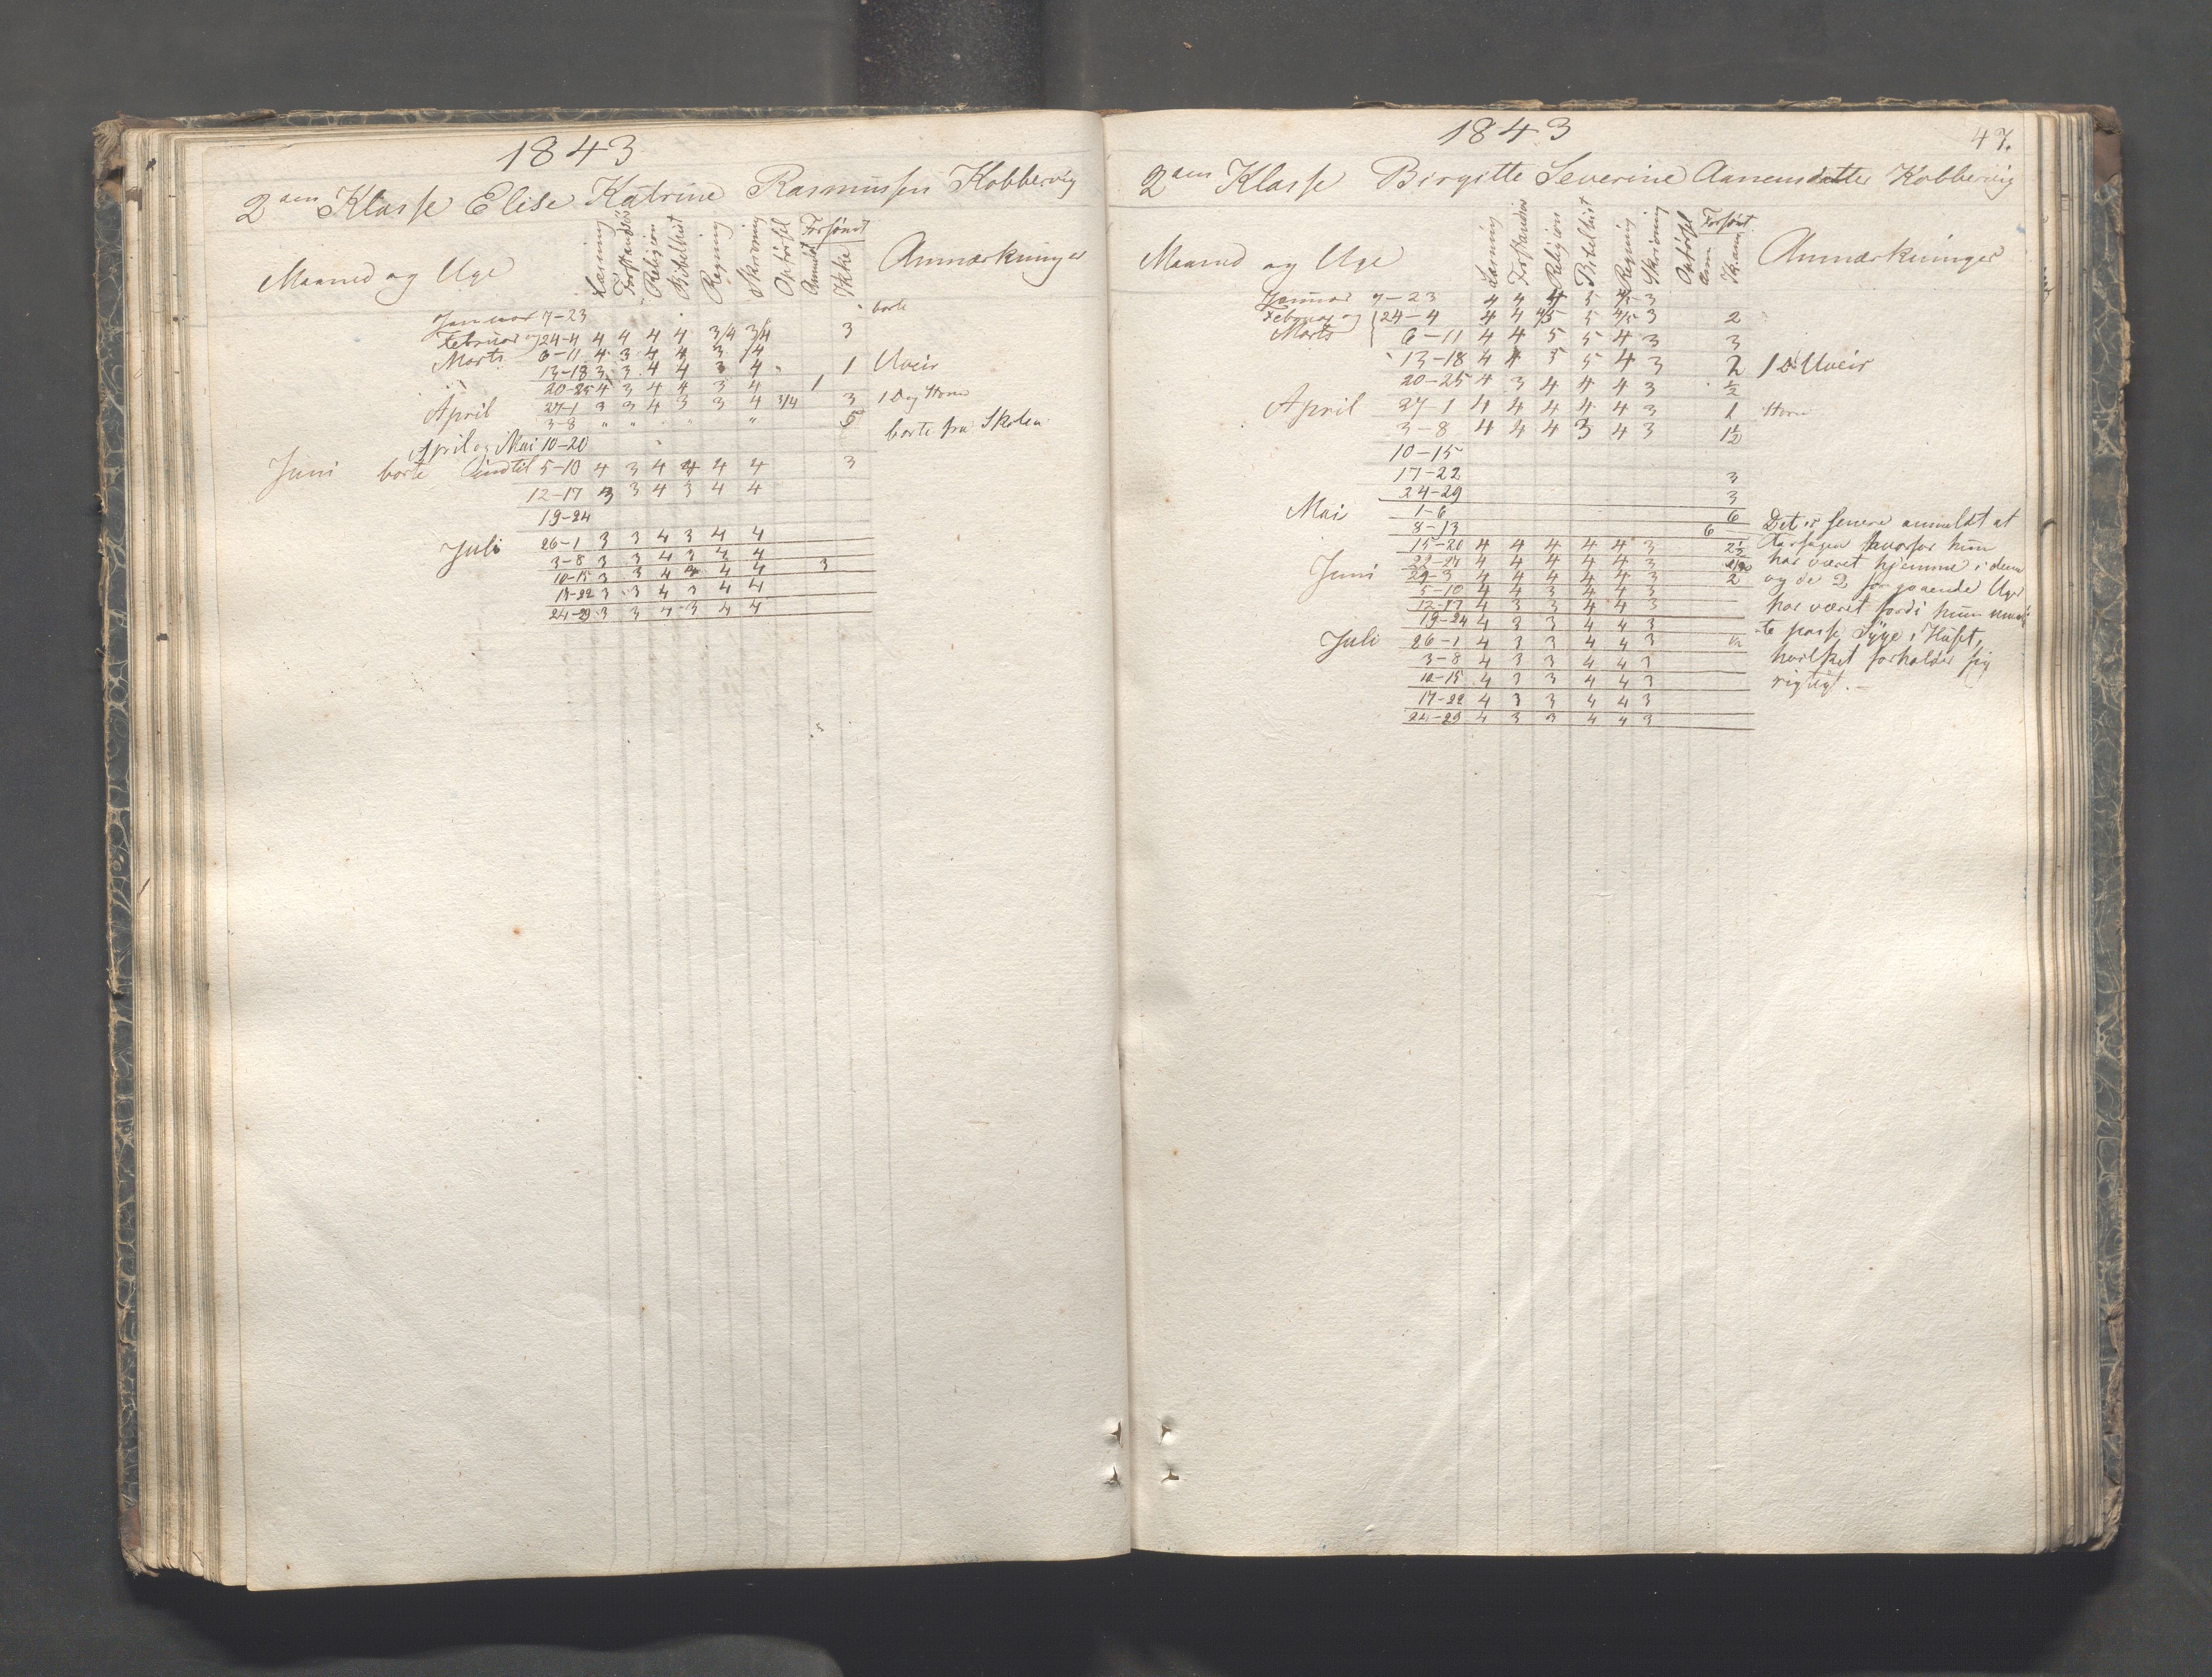 1843
2den Klasse Elise Katrine Rasmussen Kobbervig
Maaned og Uge Læsning Forstandsøv Religion Bibelhist Regning Skrivning Opførsel Forsømt Anmeldt Ikke Anmærkninger
Januar 7-23 borte
Februar og 24-4 4 4 4 4 3/4 3/4 3
Marts 6-11 4 3 4 4 3 4
13-18 3 3 4 4 3 4 " 1 Uveir
20-25 4 3 4 4 3 4 1
April 27-1 3 3 4 3 3 4 3/4 3 1 Dag
3-8 " " " " 5
April og Mai 10-20 borte fra Skolen
Juni borte indtil 5-10 4 3 4 4 4 4 3
12-17 3 3 4 3 4 4
19-24
Juli 26-1 3 3 4 3 4 4
3-8 3 3 4 3 4 4
10-15 3 3 4 3 4 4 3
17-22 3 3 4 3 4 4
24-29 3 3 4 3 4 4
1843 47.
2den Klasse Birgitte Severine Aanensdatter Kobbervig
Maaned og Uge Læsning Forstandsøv Religion Bibelhist Regning Skrivning Opførsel Forsømt Anm Ik. anm Anmærkninger
Januar 7-23 4 4 4 5 4/5 3
Februar og 24-4 4 4 4/5 5 4/5 3 2
Marts 6-11 4 4 5 5 4 3 3
13-18 4 4 5 5 4 3 2 1 D Uveir
20-25 4 3 4 4 4 3 1/2
April 27-1 4 4 4 4 4 3 1
3-8 4 4 4 3 4 3 1 1/2
10-15
17-22 3
24-29 3
Mai 1-6 6
8-13 6 Det er senere anmeldt at
15-20 4 4 4 4 4 3 2 1/2 Aarsagen hvorfor hun
22-27 4 4 4 4 4 3 har været hjemme i denne
Juni 29-3 4 4 4 4 4 3 2 og de 2 forgaaende Uger
5-10 4 4 3 4 4 3
12-17 4 3 3 4 4 3 har været fordi hun maat
19-24 4 3 3 4 4 3 te passe Syge i Huset,
Juli 26-1 4 3 3 4 4 3 1/2
3-8 4 3 3 4 4 3 hvilket forholder sig
10-15 4 3 3 4 4 3 rigtigt. —
17-22 4 3 3 4 4 3
24-29 4 3 3 4 4 3